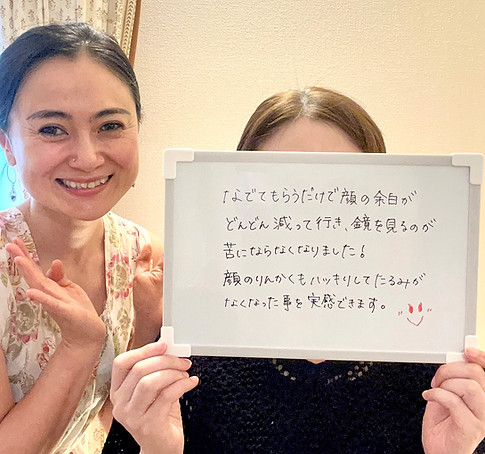 なでてもらうだけで顔の余白が
どんどん減って行き、鏡を見るのが
苦にならなくなりました!
顔のりんかくもハッキリしてたるみが
なくなった事を実感できます。